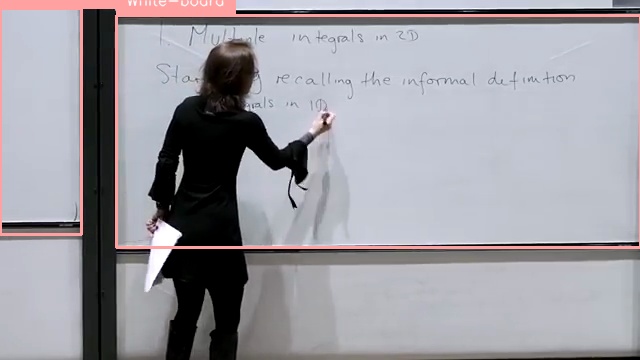 White-board
1. Multiple integrals in 2D
Star recalling the informal definition
grals in 1D